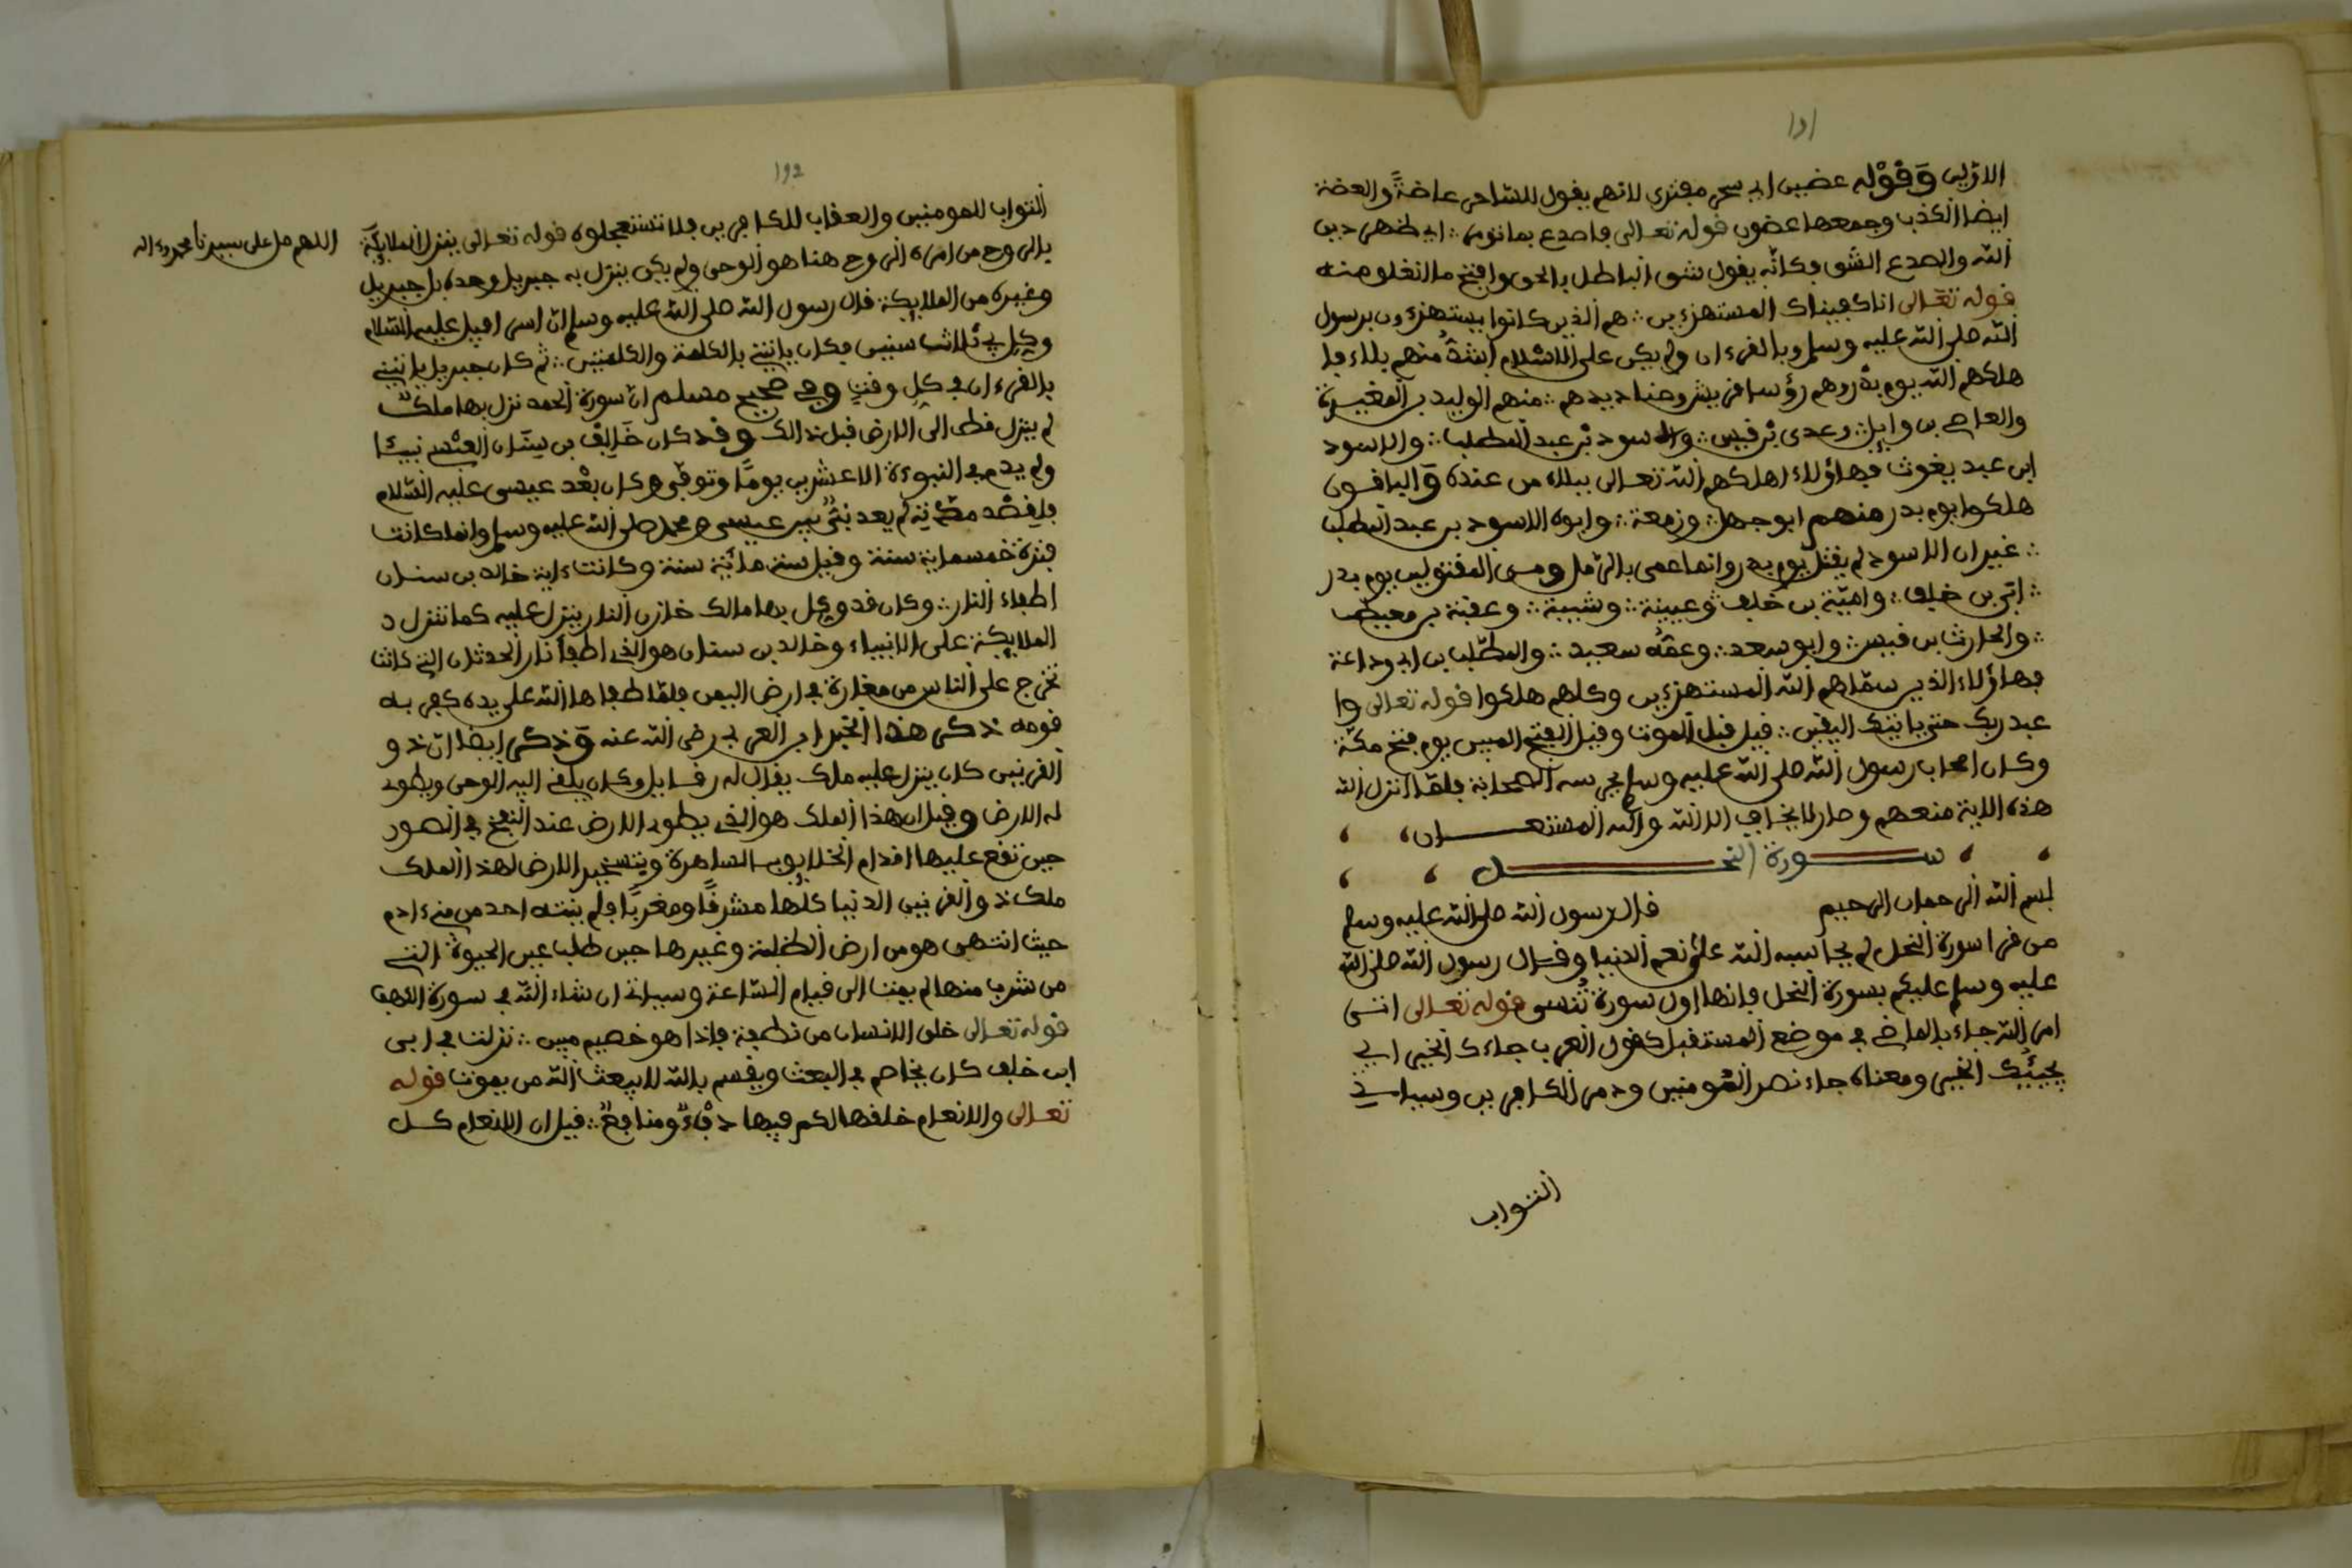 الازلين وقوله عضين اي سحر مفترى لانهم يقول للساحر عاضة والعضة
ايضا الكذب وجمعها عضون قوله تعالى فاصدع بما تومر ∴ اي اظهر دين
الله والصدع الشق فكانه يقول شق الباطل بالحق وافتح ما انغلق منه
قوله تعالى انا كفيناك المستهزءين ∴ هم الذين كانوا يستهزءون برسول
الله صلى الله عليه وسلم وبالقرءان ولم يكن على الاسلام اشد منهم بلاء فا
هلكهم الله يوم بدر وهم رؤسا قريش وصناديدهم ∴ منهم الوليد بن المغيرة
والعاصي بن وايل ∴ وعدى بن قيس ∴ والاسود بن عبد المطلب ∴ والاسود
ابن عبد يغوث فهاؤلاء اهلكهم الله تعالى ببلاء من عنده والباقون
هلكوا يوم بدر منهم ابو جهل ∴ وزمعة ∴ وابوه الاسود بن عبد المطلب
∴ غير ان الاسود لم يقتل يوم بدر وانما عمى بالرمل ومن المقتولين يوم بدر
∴ ابي بن خلف ∴ وامية بن خلف وعيينة ∴ وشيبة ∴ وعقبة بن معيط
∴ والحارث بن قيس ∴ وابو سعد ∴ وعمه سعيد ∴ والمطلب بن ابي وداعة
فهاؤلاء الذين سماهم الله المستهزءين وكلهم هلكوا قوله تعالى وا
عبد ربك حتى ياتيك اليقين ∴ قيل قبل الموت وقيل الفتح المبين يوم فتح مكة
وكان اصحاب رسول الله صلى الله عليه وسلم يحرسه الصحابة فلما انزل الله
هذه الاية منعهم وصار لا يخاف الا الله والله المستعان
سورة النحل
بسم الله الرحمان الرحيم قال رسول الله صلى الله عليه وسلم
من قرا سورة النحل لم يحاسبه الله على نعم الدنيا وقال رسول الله صلى الله
عليه وسلم عليكم بسورة النحل فانها اول سورة تنسى قوله تعالى اتى
امر الله جاء بالماضي في موضع المستقبل كقول العرب جاءك الخير اي
يجيئك الخير ومعناه جاء نصر المؤمنين ودمر الكافرين وسياتي
الثواب
الثواب للمومنين والعقاب للكافرين فلا تستعجلوه قوله تعالى ينزل الملايكة
بالروح من امره الروح هنا هو الوحي ولم يكن ينزل به جبريل وحده بل جبريل
وغيره من الملايكة قال رسول الله صلى الله عليه وسلم ان اسرافيل عليه السلام
وكل بي ثلاث سنين فكان ياتيني بالكلمة والكلمتين ∴ ثم كان جبريل ياتيني
بالقرءان في كل وقت وفي صحيح مسلم ان سورة الحمد نزل بها ملك
لم ينزل قط الى الارض قبل ذالك وقد كان خالد بن سنان العبسي نبيئا
ولم يدم في النبوءة الا عشرين يوما وتوفى وكان بعد عيسى عليه السلام
لم يعد نبي بين عيسى ومحمد صلى الله عليه وسلم وانما كانت
فترة خمسماية سنة وقيل ستماية سنة وكانت ءاية خالد بن سنان
اطفاء النار ∴ وكان قد وكل بها مالك خازن النار ينزل عليه كما تنزل
الملايكة على الانبياء وخالد بن سنان هو الذي اطفا نار الحدثان التي كانت
تخرج على الناس من مغارة في ارض اليمن فلما اطفاها الله على يده كفر به
قومه ذكر هذا الخبر ابن العربي رضي الله عنه وذكر ايضا ان ذو
القرنين كان ينزل عليه ملك يقال له رفاييل وكان يلقي اليه الوحي ويطوي
له الارض وقيل ان هذا الملك هو الذي يطوي الارض عند النفخ في الصور
حين تقع عليها اقدام الخلايق بالساهرة وتسخير الارض لهذا الملك
ملك ذو القرنين الدنيا كلها مشرقا ومغربا فلم ينته احد من بني ءادم
حيث انتهى هو من ارض الظلمة وغيرها حين طلب عين الحيوة التي
من شرب منها لم يمت الى قيام الساعة وسياتي ان شاء الله في سورة الكهف
قوله تعالى خلق الانسان من نطفة فاذا هو خصيم مبين ∴ نزلت في ابي
ابن خلف كان يخاصم في البعث ويقسم بالله لا يبعث الله من يموت قوله
تعالى والانعام خلقها لكم فيها دفء ومنافع ∴ قيل ان الانعام كل
اللهم صل على سيدنا محمد وءاله